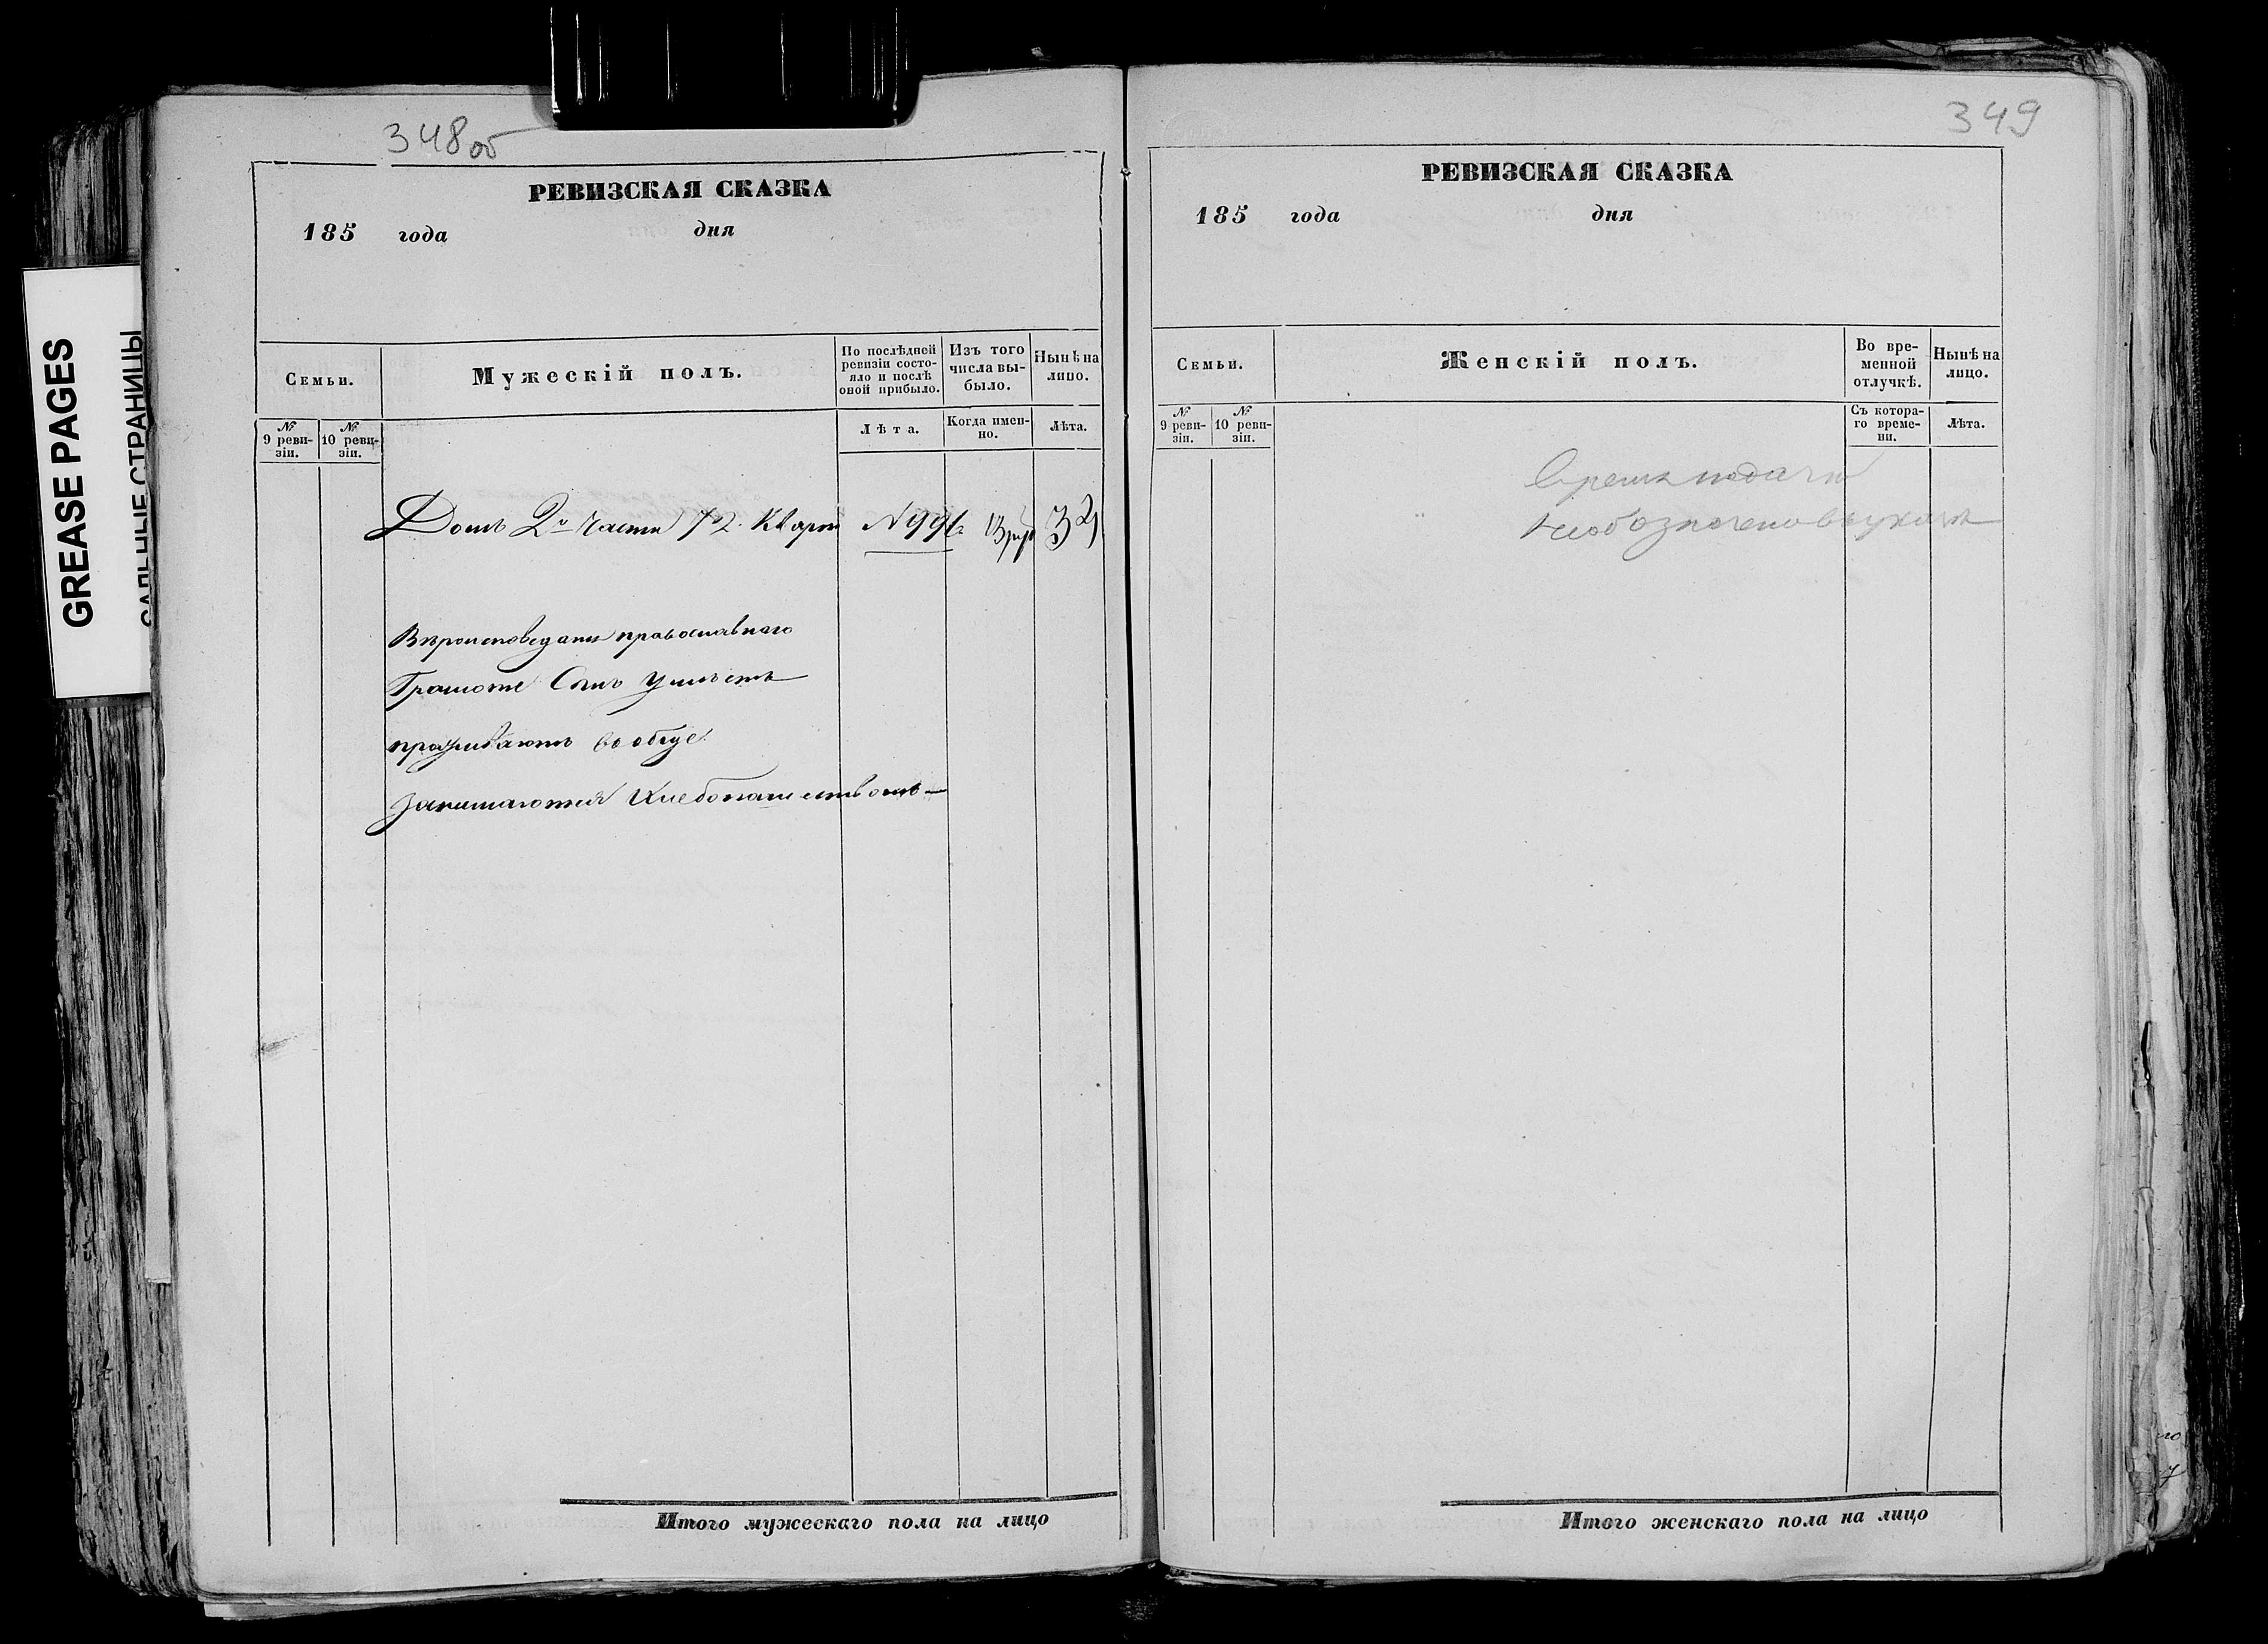 GREASE PAGES
САЛЬНЫЕ СТРАНИЦЫ
348 об
РЕВИЗСКАЯ СКАЗКА
185 года дня
Семьи.
Мужескій полъ.
По послѣдней ревизіи состояло и послѣ оной прибыло.
Изъ того числа выбыло.
Нынѣ на лицо.
№ 9 ревизіи.
№ 10 ревизіи.
Лѣта.
Когда именно.
Лѣта.
Домъ 2й части 72 Кварт № 991
Вѣроисповеданія православнаго
Грамоте Самъ умѣетъ
проживаютъ вообще
Занимаются Хлебопашествомъ —
Итого мужескаго пола на лицо
349
РЕВИЗСКАЯ СКАЗКА
185 года дня
Семьи.
Женскій полъ.
Во временной отлучкѣ.
Нынѣ на лицо.
№ 9 ревизіи.
№ 10 ревизіи.
Съ котораго времени.
Лѣта.
Время подачи
Необозначено
Итого женскаго пола на лицо